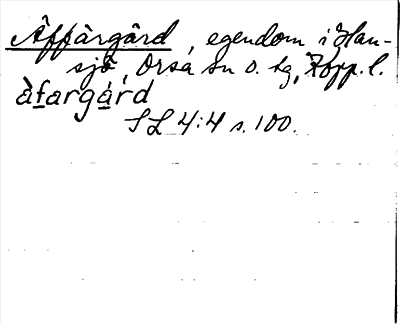 Åffàrgård, egendom i Han-
sjö, Orsa sn o. tg, Kopp. l.
àfargård
SL 4:4 s. 100.